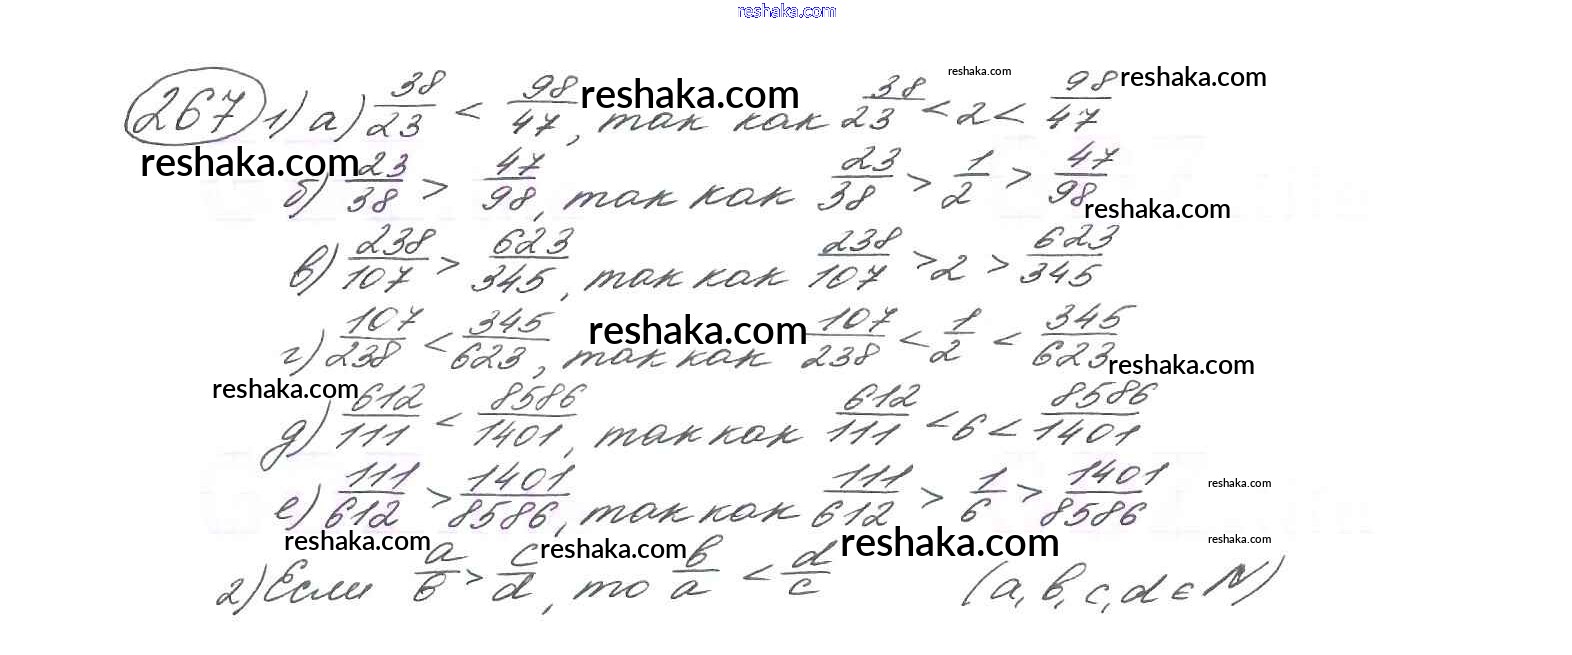 reshaka.com
267 1) а) 38/23 < 98/47, так как 38/23 < 2 < 98/47
reshaka.com reshaka.com reshaka.com
reshaka.com
б) 23/38 > 47/98, так как 23/38 > 1/2 > 47/98
reshaka.com
в) 238/107 > 623/345, так как 238/107 > 2 > 623/345
г) 107/238 < 345/623, так как 107/238 < 1/2 < 345/623
reshaka.com reshaka.com
reshaka.com
д) 612/111 < 8586/1401, так как 612/111 < 6 < 8586/1401
е) 111/612 > 1401/8586, так как 111/612 > 1/6 > 1401/8586
reshaka.com
reshaka.com reshaka.com reshaka.com reshaka.com
2) Если a/b > c/d, то b/a < d/c (a, b, c, d ∈ N)